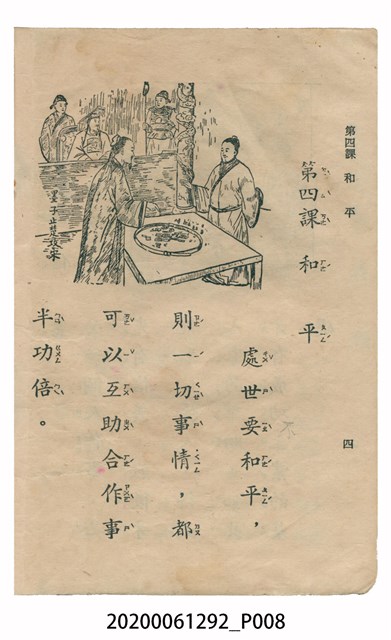 第四課 和平
四
第四課 和平
處世要和平，
則一切事情，都
可以互助合作事
半功倍。
墨子止楚攻宋
20200061292_P008